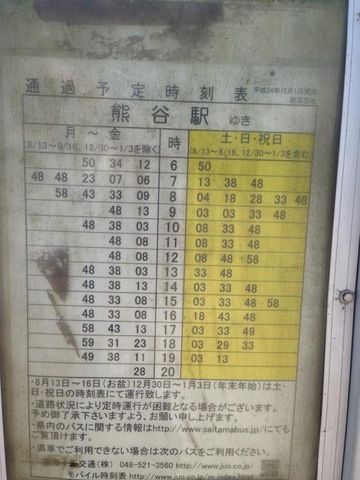 通過予定時刻表
平成24年11月1日
熊谷駅 ゆき
月～金 時 土・日・祝日
(8/13～8/16、12/30～1/3を除く) (8/13～8/16、12/30～1/3を含む)
50 34 12 6 50
48 48 23 07 06 7 13 38 48
58 43 33 09 8 04 18 28 33 48
48 13 9 03 03 33 48
48 38 03 10 08 33 48
48 33 08 11 08 33 48
12 08 48 58
48 38 03 13 33 48
48 38 03 14 03 33 48
48 33 08 15 03 33 48 58
48 33 08 16 18 43 48
58 43 13 17 03 33 49
59 31 23 18 03 29 33
49 38 11 19 03 13
28 20
・8月13日～16日(お盆)12月30日～1月3日(年末年始)は土・
日・祝日の時刻表にて運行致します。
・道路状況により定時運行が困難となる場合がございます。
予め御了承下さいますよう、お願い申し上げます。
・県内のバスに関する情報はhttp://www.saitamabus.jp/にも
ご覧頂けます。
・満車でご利用できない場合は次のバスをご利用ください。
交通(株) 048-521-3560 http://www.juo.co.jp
モバイル時刻表 http://www.juo.co.jp/m/index.html